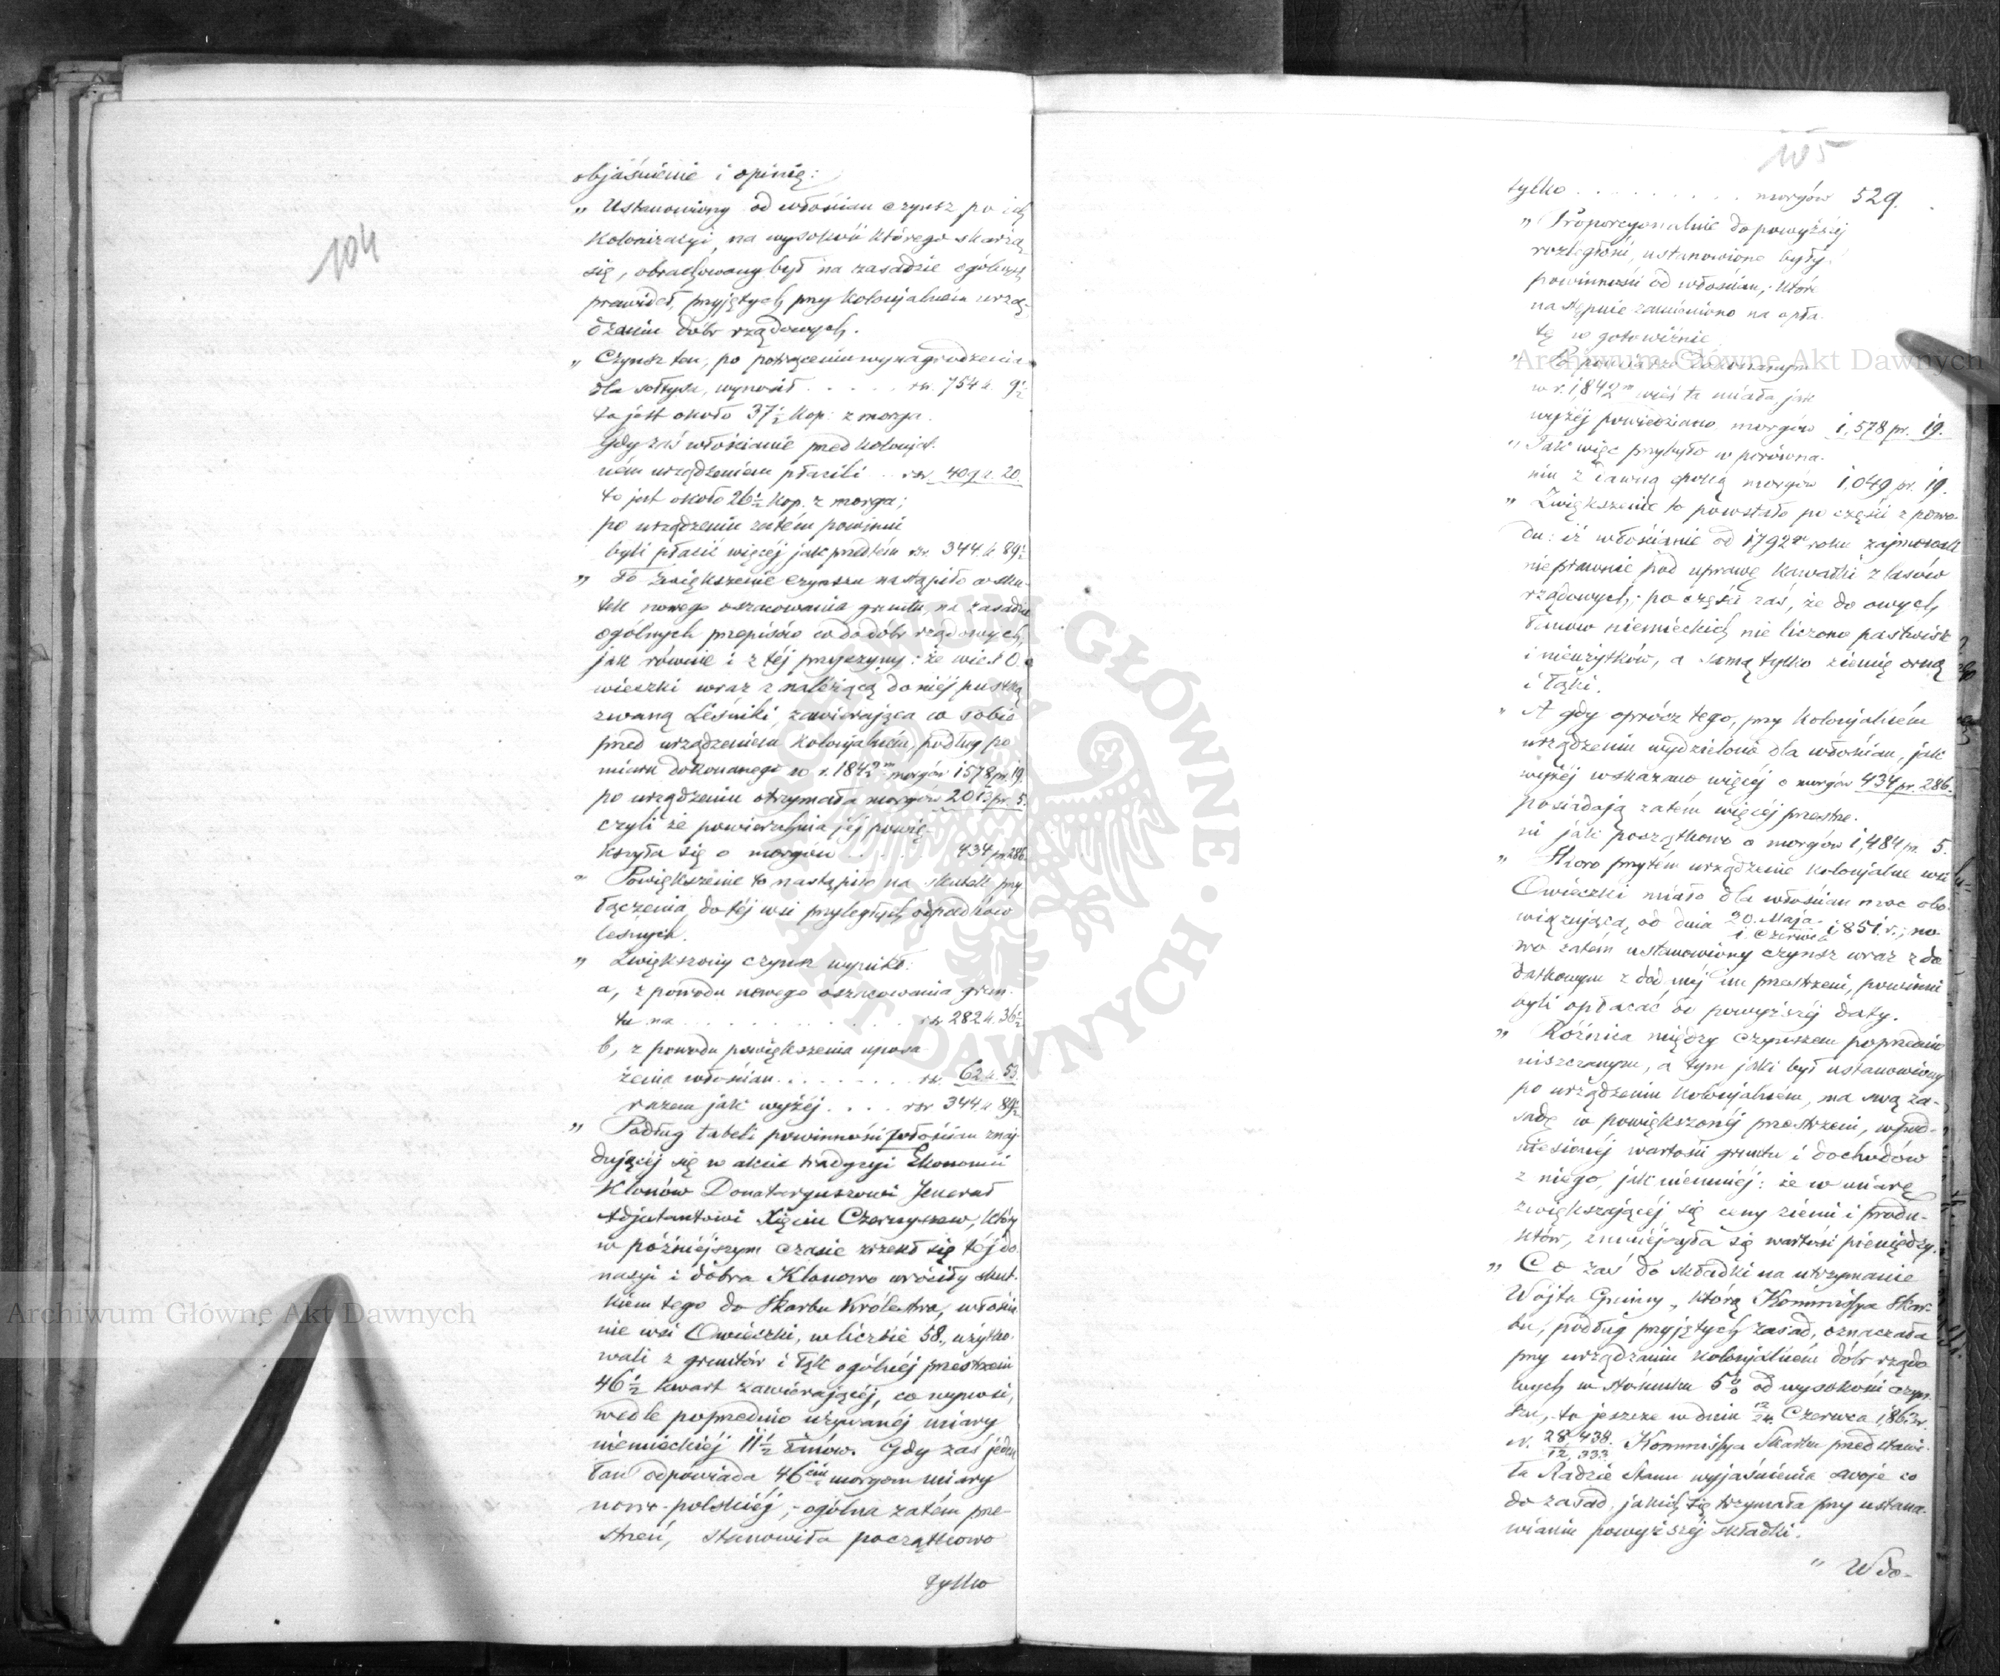 104
objaśnienie i opinię:
„ Ustanowiony od włościan czynsz po ich
kolonizacyi, na wysokość którego skarżą
się, obrachowany był na zasadzie ogólnych
prawideł, przyjętych przy kolonjalném urzą-
dzaniu dóbr rządowych.
„ Czynsz ten, po potrąceniu wynagrodzenia
dla sołtysa, wynosił . . . . . rsr. 754 k. 9½
to jest około 37½ kop: z morga.
Gdy zaś włościanie przed kolonjal-
ném urządzeniem płacili . . rsr. 409 k. 20.
to jest około 26½ kop. z morga;
po urządzeniu zatém powinni
byli płacić więcéj jak przedtém rsr. 344. k 89½
„ To zwiększenie czynszu nastąpiło w sku-
tek nowego oszacowania gruntu, na zasadzie
ogólnych przepisów co do dóbr rządowych,
jak równie i z téj przyczyny: że wieś O-
wieczki wraz z należącą do niéj pustką
zwaną Leśniki, zawierająca w sobie
przed urządzeniem kolonjalném, podług po
miaru dokonanego w r. 1842m morgów 1578 pr. 19
po urządzeniu otrzymała morgów 2013 pr. 5.
czyli że powierzchnia jéj powię-
kszyła się o morgów . . . . . 434 pr. 286.
„ Powiększenie to nastąpiło na skutek przy
łączenia do téj wsi przyległych odpadków
leśnych.
„ Zwiększony czynsz wynikł:
a, z powodu nowego oszacowania grun-
tu na . . . . . . . . . . . rsr 282 k. 36½
b, z powodu powiększenia uposa-
żenia włościan . . . . . . . . rsr. 62 k. 53.
razem jak wyżéj . . . . rsr 344. k 89½
„ Podług tabeli powinności włościan znaj-
dującéj się w akcie tradycyi Ekonomii
Klonów Donataryuszowi Jenerał
Adjutantowi Xięciu Czernyszew, który
w późniejszym czasie zrzekł się téj do-
nacyi i dobra Klonowo wróciły skut-
kiem tego do Skarbu Królestwa, włościa
nie wsi Owieczki, w liczbie 58., użytko-
wali z gruntów i łąk ogólnéj przestrzeni
46½ kwart zawierającéj, co wynosi,
wedle poprzednio używanéj miary
niemieckiéj 11½ łanów. Gdy zaś jeden
łan odpowiada 46ciu morgom miary
nowo-polskiéj, - ogólna zatém prze
strzeń, stanowiła początkowo
tylko
105
tylko . . . . . . . . . . morgów 529.
„ Proporcyonalnie do powyższéj
rozległości, ustanowione były
powinności od włościan, które
następnie zamieniono na opła-
tę w gotowiźnie
„ Po pomiarze dokonanym
w r. 1842m wieś ta miała jak
wyżéj powiedziano morgów 1,578 pr. 19.
„ Tak więc przybyło w porówna-
niu z dawną epoką morgów 1,049 pr. 19.
„ Zwiększenie to powstało po części z powo-
du: iż włościanie od 1792go roku zajmowali
nieprawnie pod uprawę kawałki z lasów
rządowych; po części zaś, że do owych
łanów niemieckich nie liczono pastwisk
i nieużytków, a samą tylko ziemię orną
i łąki.
„ A gdy oprócz tego, przy kolonjalném
urządzeniu wydzielono dla włościan, jak
wyżéj wskazano więcéj o morgów 434 pr. 286.
posiadają zatém więcéj przestrze-
ni jak początkowo o morgów 1,484 pr. 5.
„ Skoro przytém urządzenie kolonjalne wsi
Owieczki miało dla włościan moc obo-
wiązującą od dnia 20. Maja / 1. Czerwca 1,851. r.; no-
wo zatem ustanowiony czynsz wraz z do
datkowym z dod. méj im przestrzeni, powinni
byli opłacać od powyższéj daty.
„ Różnica między czynszem poprzednio
uiszczanym, a tym jaki był ustanowiony
po urządzeniu kolonjalném, ma swą za-
sadę w powiększonéj przestrzeni, w pod-
niesionéj wartości gruntu i dochodów
z niego, jak niemniéj: że w miarę
zwiększającéj się ceny ziemi i produ-
któw, zmniejszyła się wartość pieniędzy.
„ Co zaś do składki na utrzymanie
Wójta Gminy, którą Kommissya Skar-
bu, podług przyjętych zasad, oznaczała
przy urządzaniu kolonjalném dóbr rządo
wych w stosunku 5% od wysokości czyn-
szu, to jeszcze w dniu 12/24 Czerwca 1,863 r.
N. 28,438./12,333. Kommissya Skarbu przedstawi-
ła Radzie Stanu wyjaśnienia swoje co
do zasad, jakich się trzymała przy ustana-
wianiu powyższéj składki.
„ Wdo-
Archiwum Główne Akt Dawnych
Archiwum Główne Akt Dawnych
ARCHIWUM GŁÓWNE · AKT DAWNYCH ·